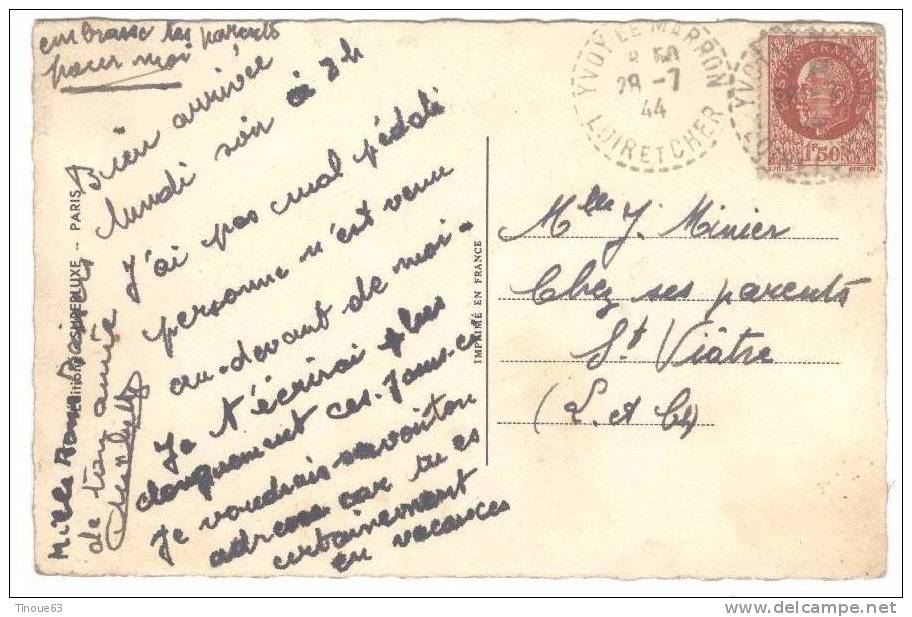 embrasse tes parents
pour moi
Bien arrivée
lundi soir à 8h
J'ai pas mal pédalé
personne n'est venu
au-devant de moi-
Je t'écrirai plus
longuement ces-jours-ci
Je voudrais savoir ton
adresse car tu es
certainement
en vacances
Mille Bons Baisers
de ton amie
Editions SUPERLUXE -- PARIS
IMPRIMÉ EN FRANCE
YVOY LE MARRON
28 -7
44
LOIRETCHER
POSTES FRANÇAISES
1F50
Mlle J. Minier
Chez ses parents
St Viâtre
(L. et Ch)
Tinoue63
www.delcampe.net